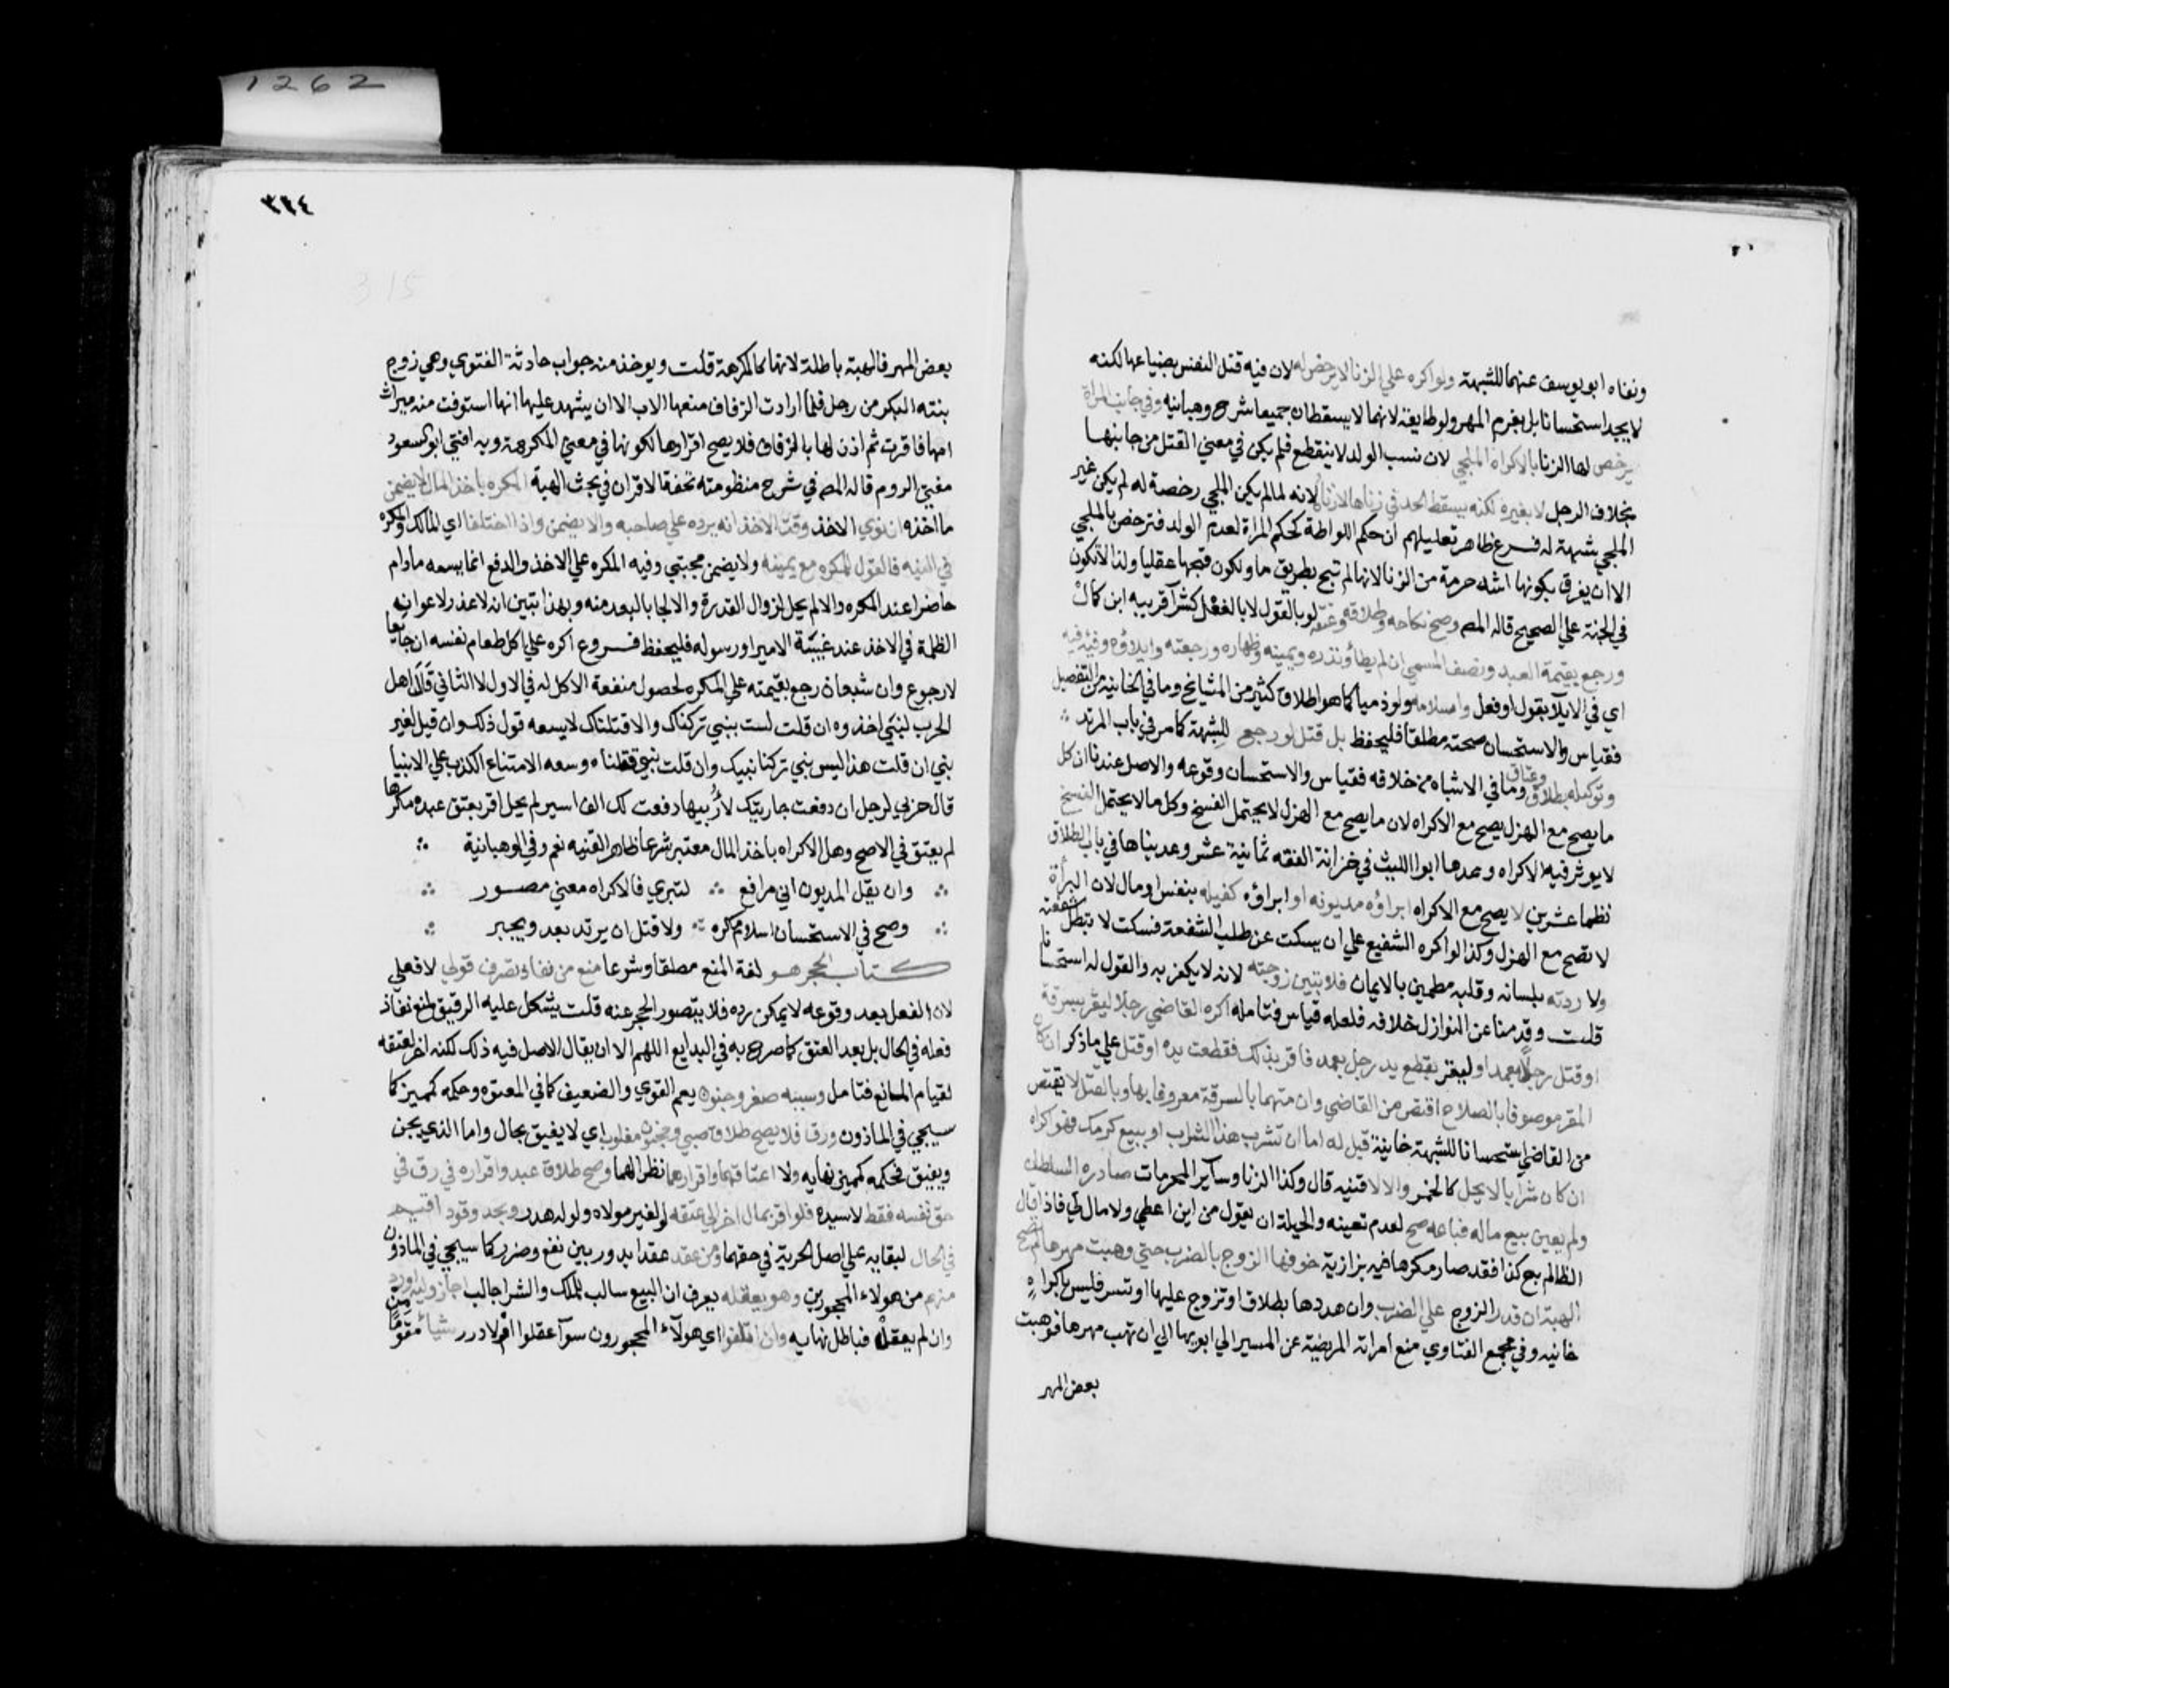 1262
ونفاه ابو يوسف عنهما للشبهة ولو اكره علي الزنا لا يرخص له لان فيه قتل النفس بضياعها لكنه
لا يحد استحسانا بل يغرم المهر ولو طايعة لانهما لا يسقطان جميعا شرح وهبانيه وفي جانب المراة
يرخص لها الزنا بالاكراه الملجي لان نسب الولد لا ينقطع فلم يكن في معني القتل من جانبها
بخلاف الرجل لا بغيره لكنه يسقط الحد في زناها لا زناه لانه لما لم يكن الملجي رخصة له لم يكن غير
الملجي شبهة له فرع ظاهر تعليلهم ان حكم اللواطة كحكم المراة لعدم الولد فترخص بالملجي
الا ان يفرق بكونها اشد حرمة من الزنا لانها لم تبح بطريق ما ولكون قبحها عقليا ولذا لا تكون
في الجنة علي الصحيح قاله المص وصح نكاحه وطلاقه وعتقه لو بالقول لا بالفعل كشرا قريبه ابن كمال
ورجع بقيمة العبد ونصف المسمي ان لم يطا ونذره ويمينه وظهاره ورجعته وايلاؤه وفيئه فيه
اي في الايلا بقول او فعل واسلامه ولو ذميا كما هو اطلاق كثير من المشايخ وما في الخانيه من التفصيل
فقياس والاستحسان صحته مطلقا فليحفظ بلا قتل لو رجع للشبهة كما مر في باب المرتد
وتوكيله بطلاق وعتاق وما في الاشباه من خلافه فقياس والاستحسان وقوعه والاصل عندنا ان كل
ما يصح مع الهزل يصح مع الاكراه لان ما يصح مع الهزل لا يحتمل الفسخ وكل ما لا يحتمل الفسخ
لا يوثر فيه الاكراه وعدها ابوا الليث في خزانة الفقه ثمانية عشر وعديناها في باب الطلاق
نظما عشرين لا يصح مع الاكراه ابراؤه مديونه او ابراؤه كفيله بنفس او مال لان البراة
لا تصح مع الهزل وكذا لو اكره الشفيع علي ان يسكت عن طلب الشفعة فسكت لا تبطل شفعته
ولا ردته بلسانه وقلبه مطمين بالايمان فلا تبين زوجته لانه لا يكفر به والقول له استحسانا
قلت وقدمنا عن النوازل خلافه فلعله قياس فتامله اكره القاضي رجلا ليقر بسرقة
او قتل رجلا بعمد او ليقر بقطع يد رجل بعمد فاقر بذلك فقطعت يده او قتل علي ما ذكر ان كان
المقر موصوفا بالصلاح اقتص من القاضي وان متهما بالسرقة معروفا بها وبالقتل لا يقتص
من القاضي استحسانا للشبهة خانية قيل له اما ان تشرب هذا الشراب او بيع كرمك فهو اكراه
ان كان شرابا لا يحل كالخمر والا لا قنيه قال وكذا الزنا وساير المحرمات صادره السلطان
ولم يعين بيع ماله فباعه صح لعدم تعينه والحيلة ان يقول من اين اعطي ولا مال لي فاذا قال
الظالم بع كذا فقد صار مكرها فيه بزازية خوفها الزوج بالضرب حتي وهبت مهرها لم تصح
الهبة ان قدر الزوج علي الضرب وان هددها بطلاق او تزوج عليها او تسر فليس باكراه
خانيه وفي مجمع الفتاوي منع امراته المريضة عن المسير الي ابويها الي ان تهب مهرها فوهبت
بعض المهر
٣٢٤
315
بعض المهر فالهبة باطلة لانها كالمكرهة قلت ويوخذ منه جواب حادثة الفتوي وهي زوج
بنته البكر من رجل فلما ارادت الزفاف منعها الاب الا ان يشهد عليها انها استوفت منه ميراث
امها فاقرت ثم اذن لها بالزفاف فلا يصح اقرارها لكونها في معني المكرهة وبه افتي ابو السعود
مفتي الروم قاله المص في شرح منظومته تحفة الاقران في بحث الهبة المكره باخذ المال لا يضمن
ما اخذه ان نوي الاخذ وقت الاخذ انه يرده علي صاحبه والا يضمن واذا اختلفا اي المالك والمكره
في النيه فالقول للمكره مع يمينه ولا يضمن مجتبي وفيه المكره علي الاخذ والدفع انما يسعه مادام
حاضرا عند المكره والا لم يحل لزوال القدرة والالجا بالبعد منه وبهذا تبين انه لا عذر لاعوان
الظلمة في الاخذ عند غيبة الامير او رسوله فليحفظ فروع اكره علي اكل طعام نفسه ان جايعا
لا رجوع وان شبعان رجع بقيمته علي المكره لحصول منفعة الاكل له في الاول لا الثاني قال اهل
الحرب لنبي اخذوه ان قلت لست بنبي تركناك والا قتلناك لا يسعه قول ذلك وان قيل لغير
نبي ان قلت هذا ليس بنبي تركنا نبيك وان قلت نبي قتلناه وسعه الامتناع الكذب علي الانبيا
قال حربي لرجل ان دفعت جاريتك لازني بها دفعت لك الف اسير لم يحل اقر بعتق عبده مكرها
لم يعتق في الاصح وهل الاكراه باخذ المال معتبر شرعا ظاهر القنيه نعم وفي الوهبانية
وان يقل المديون اني مرافع لتبري فالاكراه معني مصور
وصح في الاستحسان اسلام مكره ولا قتل ان يرتد بعد ويجبر
كتاب الحجر هو لغة المنع مطلقا وشرعا منع من نفاذ تصرف قولي لا فعلي
لان الفعل بعد وقوعه لا يمكن رده فلا يتصور الحجر عنه قلت يشكل عليه الرقيق لمنع نفاذ
فعله في الحال بل بعد العتق كما صرح به في البدايع اللهم الا ان يقال الاصل فيه ذلك لكنه اخر لعتقه
لقيام المانع فتامل وسببه صغر وجنون يعم القوي والضعيف كما في المعتوه وحكمه كمميز كما
سيجي في الماذون ورق فلا يصح طلاق صبي ومجنون مغلوب اي لا يفيق بحال واما الذي يجن
ويفيق فحكمه كمميز نهايه ولا اعتاقهما واقرارهما نظرا لهما وصح طلاق عبد واقراره في رق في
حق نفسه فقط لا سيده فلو اقر بمال اخر الي عتقه لو لغير مولاه ولو له هدر وبحد وقود اقيم
في الحال لبقايه علي اصل الحرية في حقهما ومن عقد عقدا يدور بين نفع وضرر كما سيجي في الماذون
منهم من هولاء المحجورين وهو يعقله يعرف ان البيع سالب للملك والشرا جالب اجاز وليه اورد
وان لم يعقله فباطل نهايه وان اتلفوا اي هولآء المحجورون سوآ عقلوا اولا درر شيا مقوما